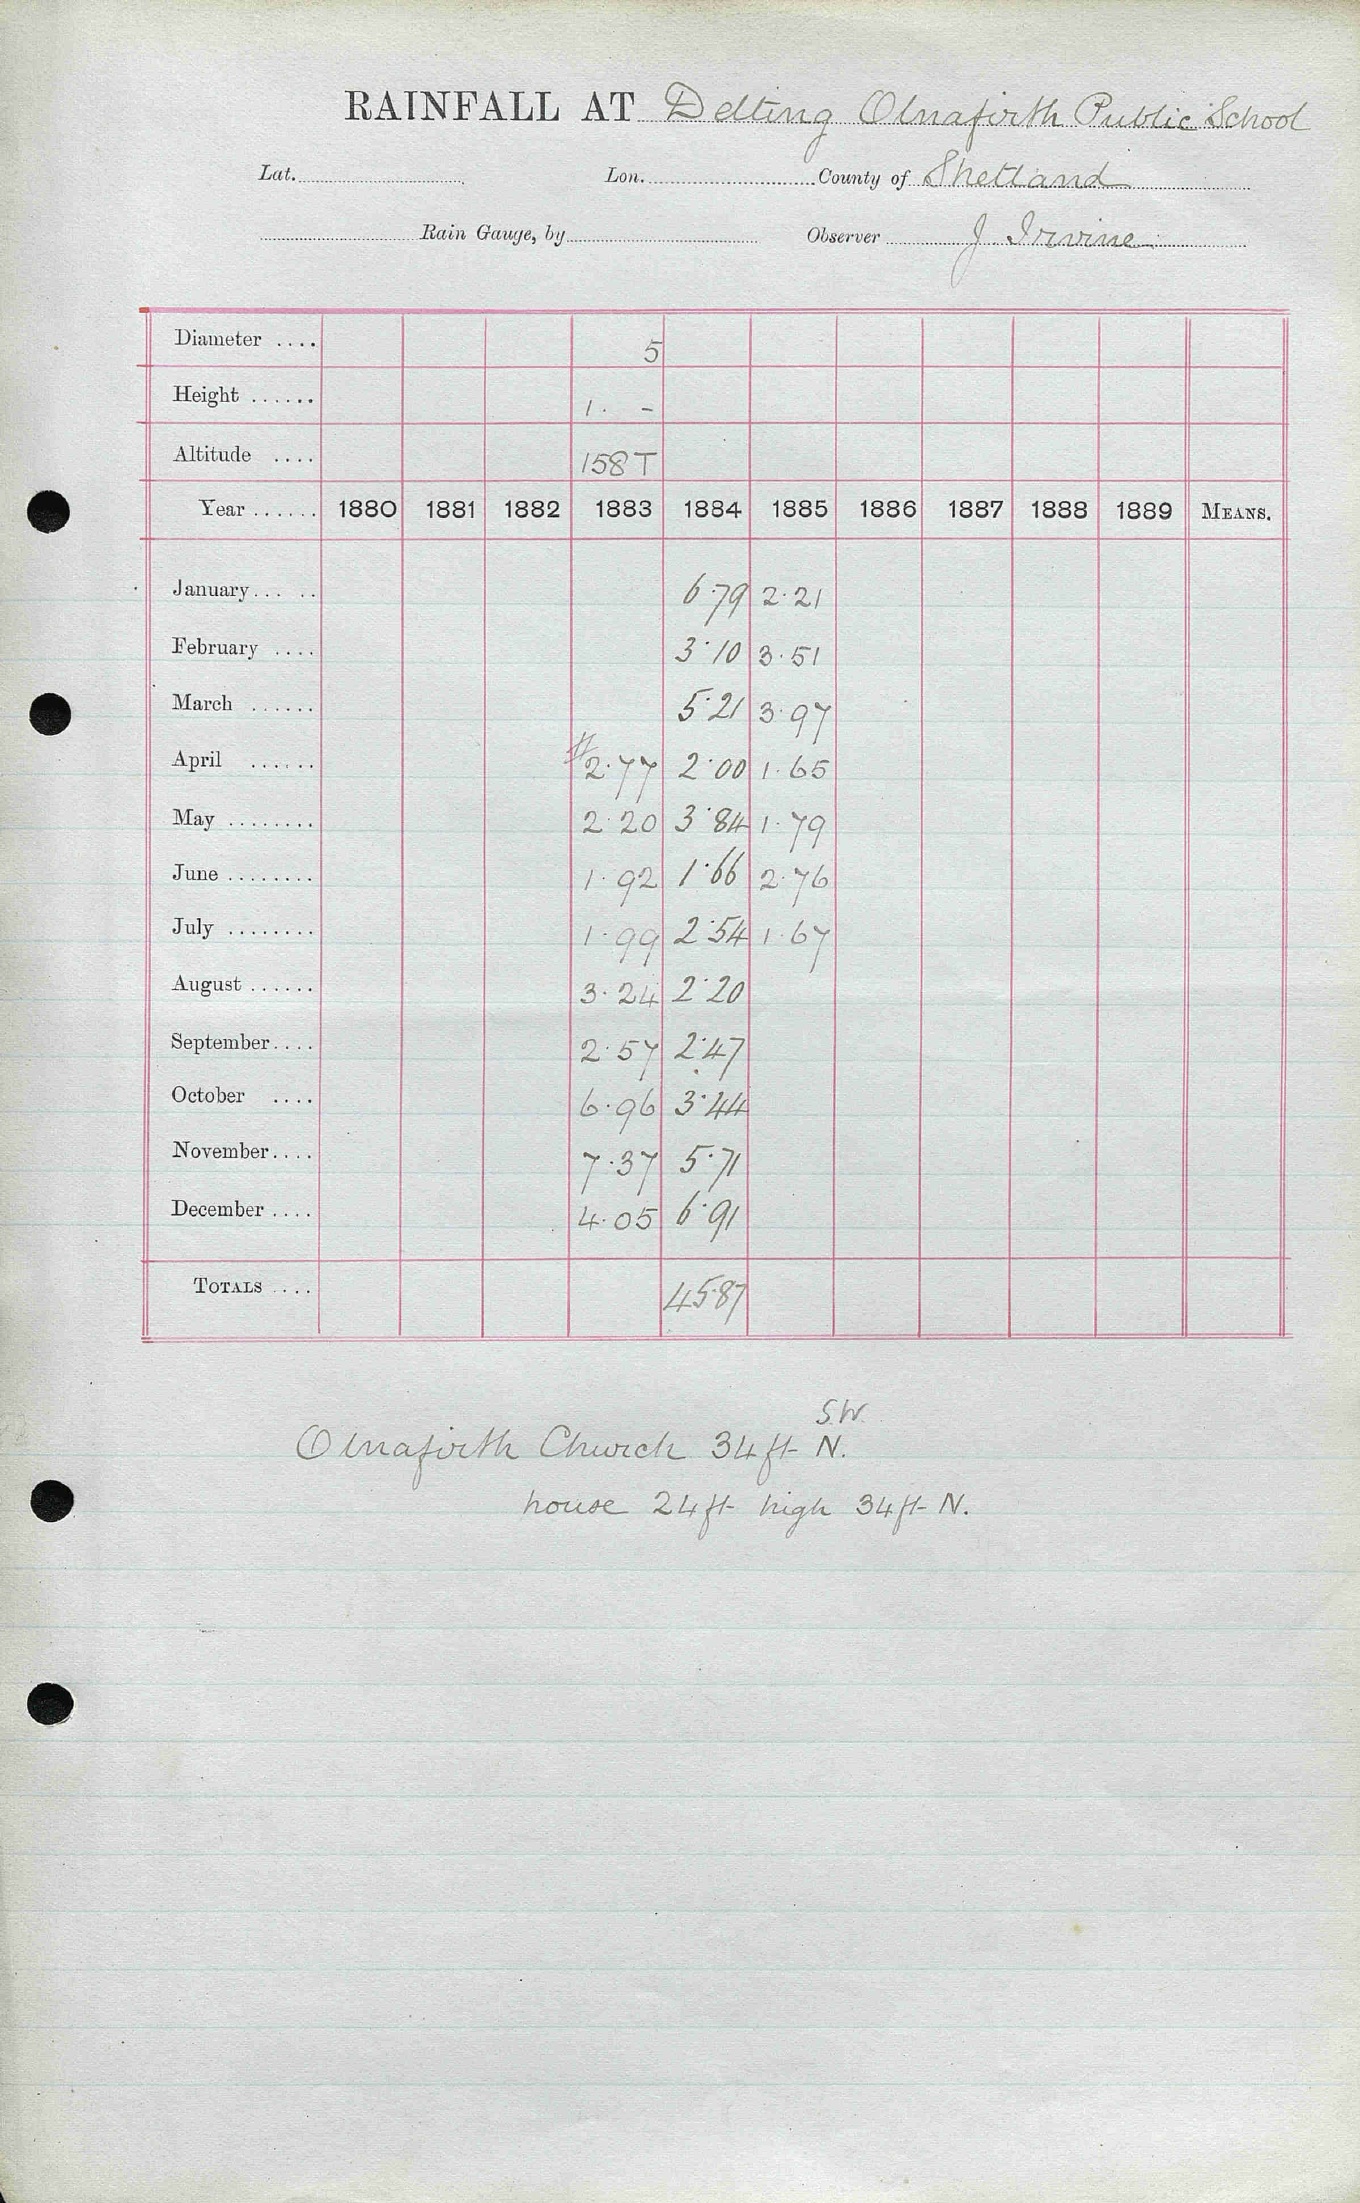 RAINFALL AT Delting Olnafirth Public School
Lat. Lon. County of Shetland
Rain Gauge, by Observer J Irvine
Diameter .... 5
Height ...... 1. -
Altitude .... 158 T
Year ...... 1880 1881 1882 1883 1884 1885 1886 1887 1888 1889 MEANS.
January ... .. 6.79 2.21
February .... 3.10 3.51
March ...... 5.21 3.97
April ...... # 2.77 2.00 1.65
May ........ 2.20 3.84 1.79
June ........ 1.92 1.66 2.76
July ........ 1.99 2.54 1.67
August ...... 3.24 2.20
September .... 2.57 2.47
October .... 6.96 3.44
November .... 7.37 5.71
December .... 4.05 6.91
TOTALS .... 45.87
S.W.
Olnafirth Church 34 ft N.
house 24 ft high 34 ft N.